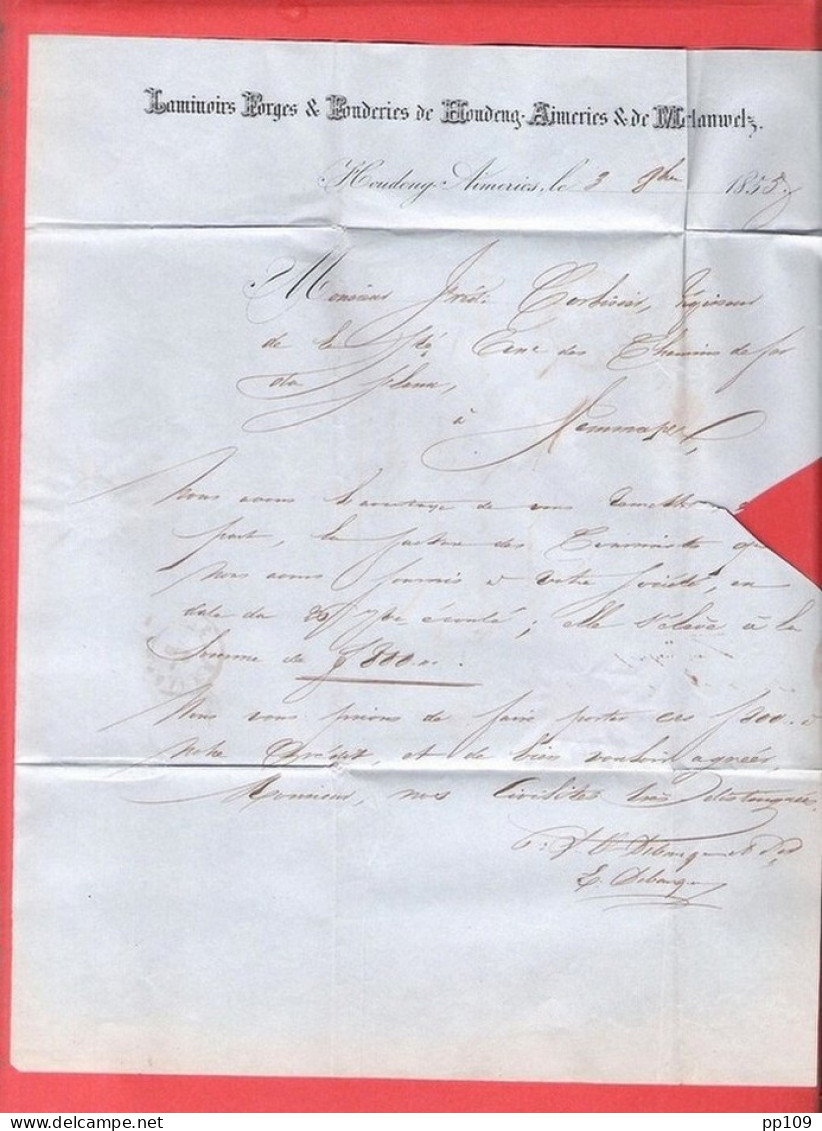 Laminoirs Forges & Fonderies de Houdeng-Aimeries & de M-lanwelz.
Houdeng-Aimeries, le 3 9bre 1855
Monsieur Corbisier, Ingénieur
de la Sté Ane des Chemins de fer
du Flenu,
à Jemmapes
Nous avons l'avantage de vous remettre
part, la facture des que
nous avons fournis à votre Société, en
date du 26 7bre écoulé ; elle s'élève à la
somme de f 800 .
Nous vous prions de faire porter ces f 800 . à
notre Crédit, et de bien vouloir agréer,
Monsieur, nos Civilités très distinguées.
E. Debarge
pp109